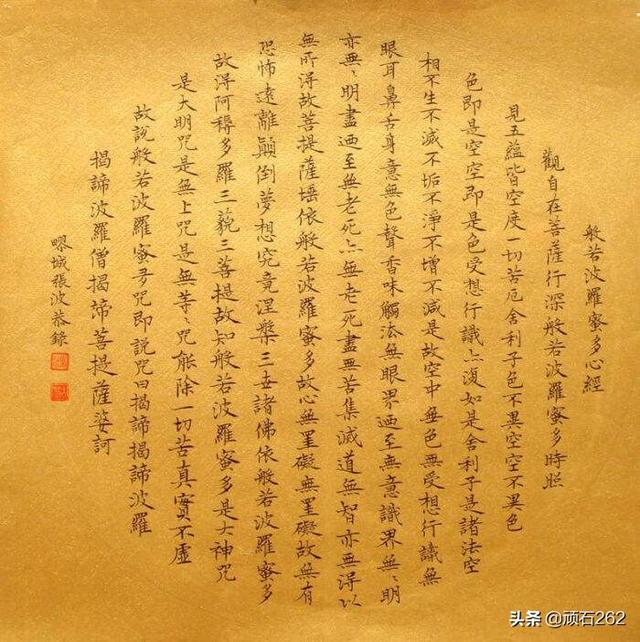 般若波羅蜜多心經
觀自在菩薩行深般若波羅蜜多時照
見五蘊皆空度一切苦厄舍利子色不異空空不異色
色即是空空即是色受想行識亦復如是舍利子是諸法空
相不生不滅不垢不淨不增不減是故空中無色無受想行識無
眼耳鼻舌身意無色聲香味觸法無眼界迺至無意識界無〻明
亦無〻明盡迺至無老死亦無老死盡無苦集滅道無智亦無得以
無所得故菩提薩埵依般若波羅蜜多故心無罣礙無罣礙故無有
恐怖遠離顛倒夢想究竟涅槃三世諸佛依般若波羅蜜多
故得阿耨多羅三藐三菩提故知般若波羅蜜多是大神咒
是大明咒是無上咒是無等〻咒能除一切苦真實不虛
故說般若波羅蜜多咒即說咒曰揭諦揭諦波羅
揭諦波羅僧揭諦菩提薩婆訶
疁城張波恭錄
头条 @顽石262